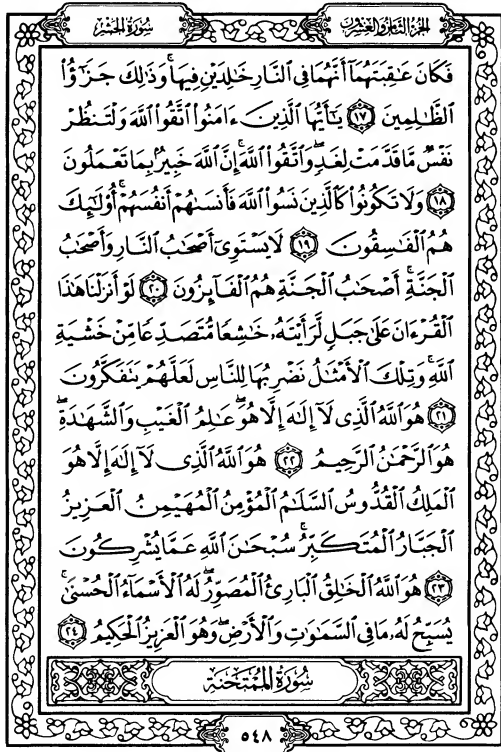 سُورَةُ الحَشْرِ
الجُزْءُ الثَّامِنُ وَالْعِشْرُونَ
فَكَانَ عَٰقِبَتَهُمَآ أَنَّهُمَا فِى ٱلنَّارِ خَٰلِدَيْنِ فِيهَا ۚ وَذَٰلِكَ جَزَٰٓؤُا۟
ٱلظَّٰلِمِينَ ١٧ يَٰٓأَيُّهَا ٱلَّذِينَ ءَامَنُوا۟ ٱتَّقُوا۟ ٱللَّهَ وَلْتَنظُرْ
نَفْسٌ مَّا قَدَّمَتْ لِغَدٍ ۖ وَٱتَّقُوا۟ ٱللَّهَ ۚ إِنَّ ٱللَّهَ خَبِيرٌۢ بِمَا تَعْمَلُونَ
١٨ وَلَا تَكُونُوا۟ كَٱلَّذِينَ نَسُوا۟ ٱللَّهَ فَأَنسَىٰهُمْ أَنفُسَهُمْ ۚ أُو۟لَٰٓئِكَ
هُمُ ٱلْفَٰسِقُونَ ١٩ لَا يَسْتَوِىٓ أَصْحَٰبُ ٱلنَّارِ وَأَصْحَٰبُ
ٱلْجَنَّةِ ۚ أَصْحَٰبُ ٱلْجَنَّةِ هُمُ ٱلْفَآئِزُونَ ٢٠ لَوْ أَنزَلْنَا هَٰذَا
ٱلْقُرْءَانَ عَلَىٰ جَبَلٍ لَّرَأَيْتَهُۥ خَٰشِعًا مُّتَصَدِّعًا مِّنْ خَشْيَةِ
ٱللَّهِ ۚ وَتِلْكَ ٱلْأَمْثَٰلُ نَضْرِبُهَا لِلنَّاسِ لَعَلَّهُمْ يَتَفَكَّرُونَ
٢١ هُوَ ٱللَّهُ ٱلَّذِى لَآ إِلَٰهَ إِلَّا هُوَ ۖ عَٰلِمُ ٱلْغَيْبِ وَٱلشَّهَٰدَةِ ۖ
هُوَ ٱلرَّحْمَٰنُ ٱلرَّحِيمُ ٢٢ هُوَ ٱللَّهُ ٱلَّذِى لَآ إِلَٰهَ إِلَّا هُوَ
ٱلْمَلِكُ ٱلْقُدُّوسُ ٱلسَّلَٰمُ ٱلْمُؤْمِنُ ٱلْمُهَيْمِنُ ٱلْعَزِيزُ
ٱلْجَبَّارُ ٱلْمُتَكَبِّرُ ۚ سُبْحَٰنَ ٱللَّهِ عَمَّا يُشْرِكُونَ
٢٣ هُوَ ٱللَّهُ ٱلْخَٰلِقُ ٱلْبَارِئُ ٱلْمُصَوِّرُ ۖ لَهُ ٱلْأَسْمَآءُ ٱلْحُسْنَىٰ ۚ
يُسَبِّحُ لَهُۥ مَا فِى ٱلسَّمَٰوَٰتِ وَٱلْأَرْضِ ۖ وَهُوَ ٱلْعَزِيزُ ٱلْحَكِيمُ ٢٤
سُورَةُ المُمْتَحنَة
٥٤٨